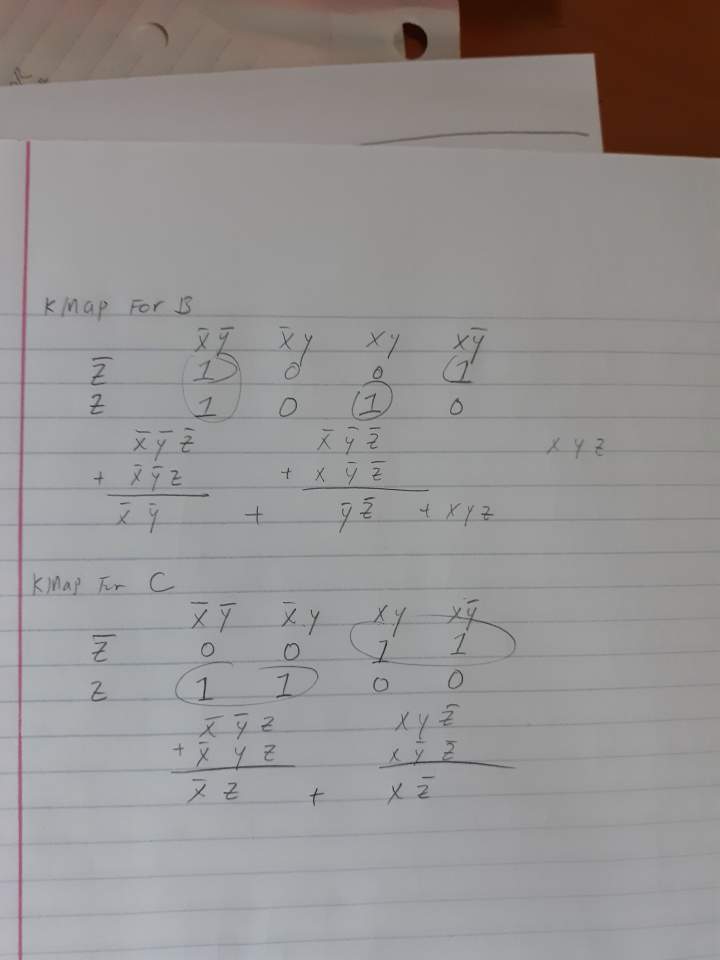 KMap For B
X̅ Y̅ X̅ y x y x y̅
Z̅ 1 0 0 1
Z 1 0 1 0
X̅ Y̅ Z̅ X̅ Y̅ Z̅ X Y Z
+ X̅ Y̅ Z + X Y̅ Z̅
X̅ Y̅ + Y̅ Z̅ + X Y Z
KMap For C
X̅ Y̅ X̅ Y X Y X Y̅
Z̅ 0 0 1 1
Z 1 1 0 0
X̅ Y̅ Z X Y Z̅
+ X̅ Y Z X Y̅ Z̅
X̅ Z + X Z̅